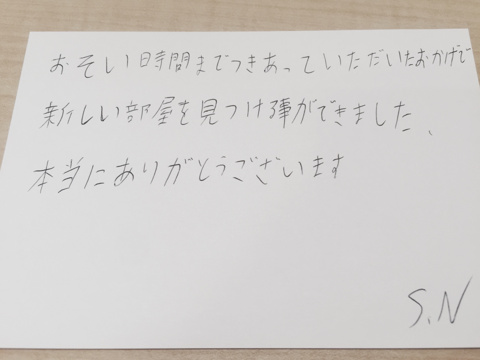 おそい時間までつきあっていただいたおかげで
新しい部屋を見つけ事ができました、
本当にありがとうございます
S.N